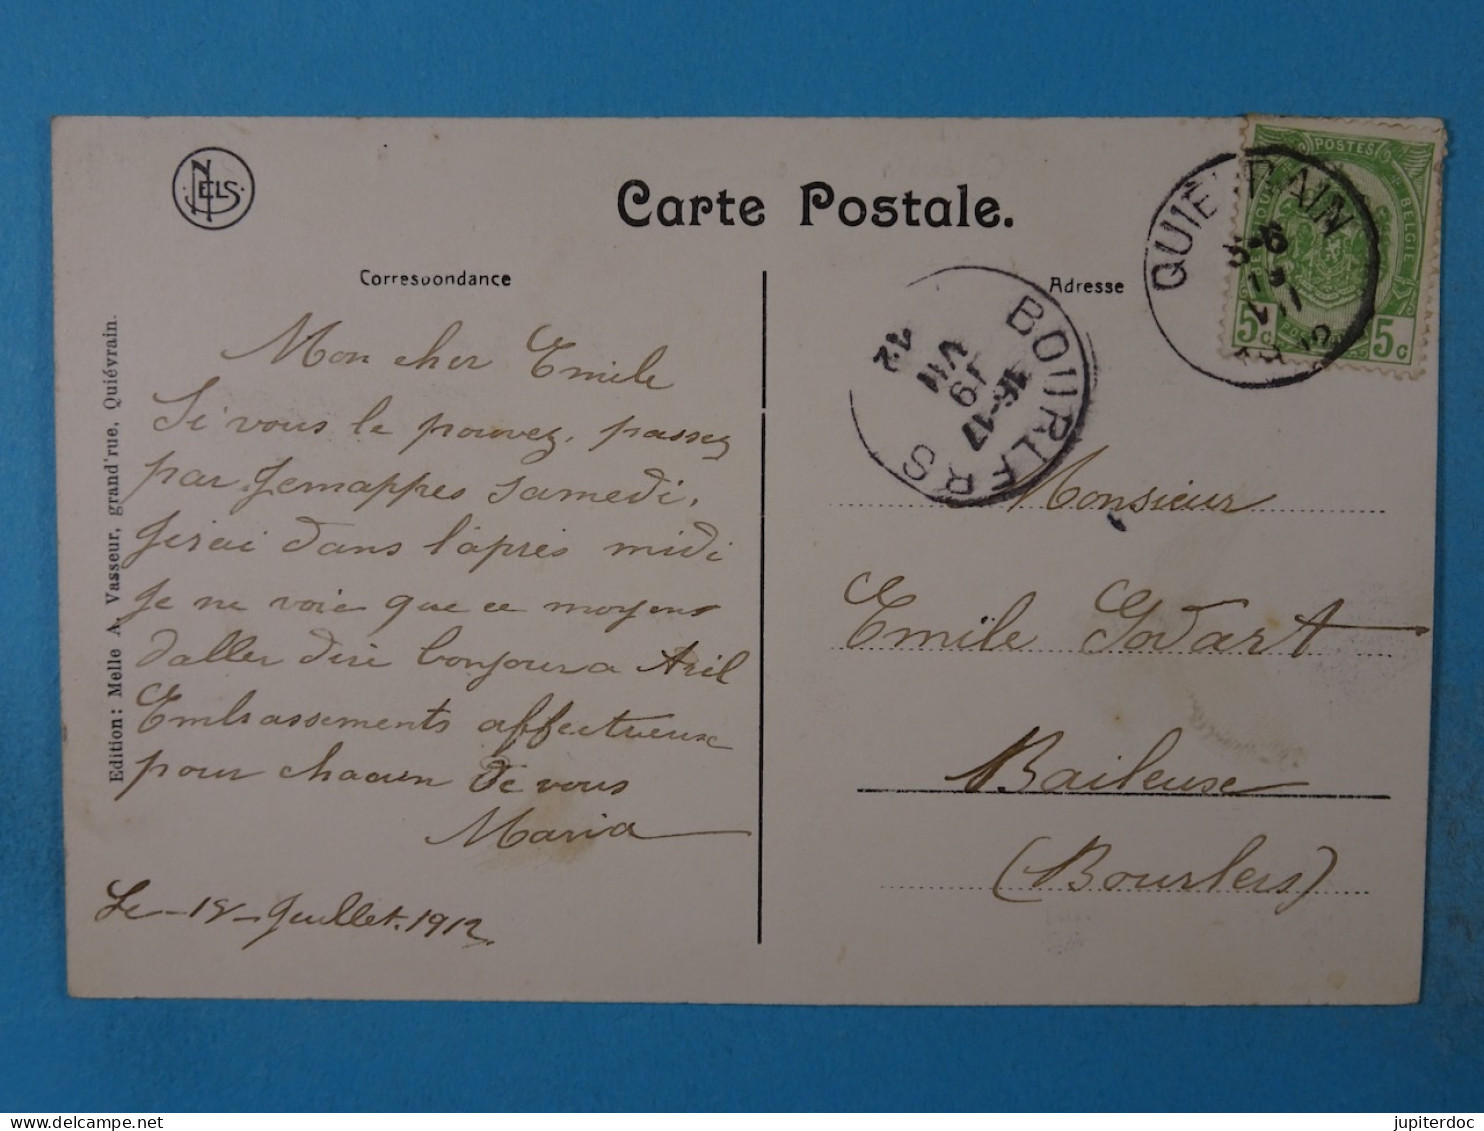 NELS
Carte Postale.
Correspondance
Adresse
Mon cher Emile
Si vous le pouvez, passez
par Jemappes samedi,
J'irai dans l'après midi
Je ne voie que ce moyens
d'aller dire bonjour a
Embrassements affectueuse
pour chacun de vous
Maria
Le 18 Juillet. 1912
Edition: Melle A. Vasseur, grand'rue, Quiévrain.
POSTES
BELGIE
5c 5c
QUIÉVRAIN
5-6
19
VII
BOURLERS
16-17
19
VII
12
Monsieur
Emile Godart
Baileuse
(Bourlers)
jupiterdoc
delcampe.net